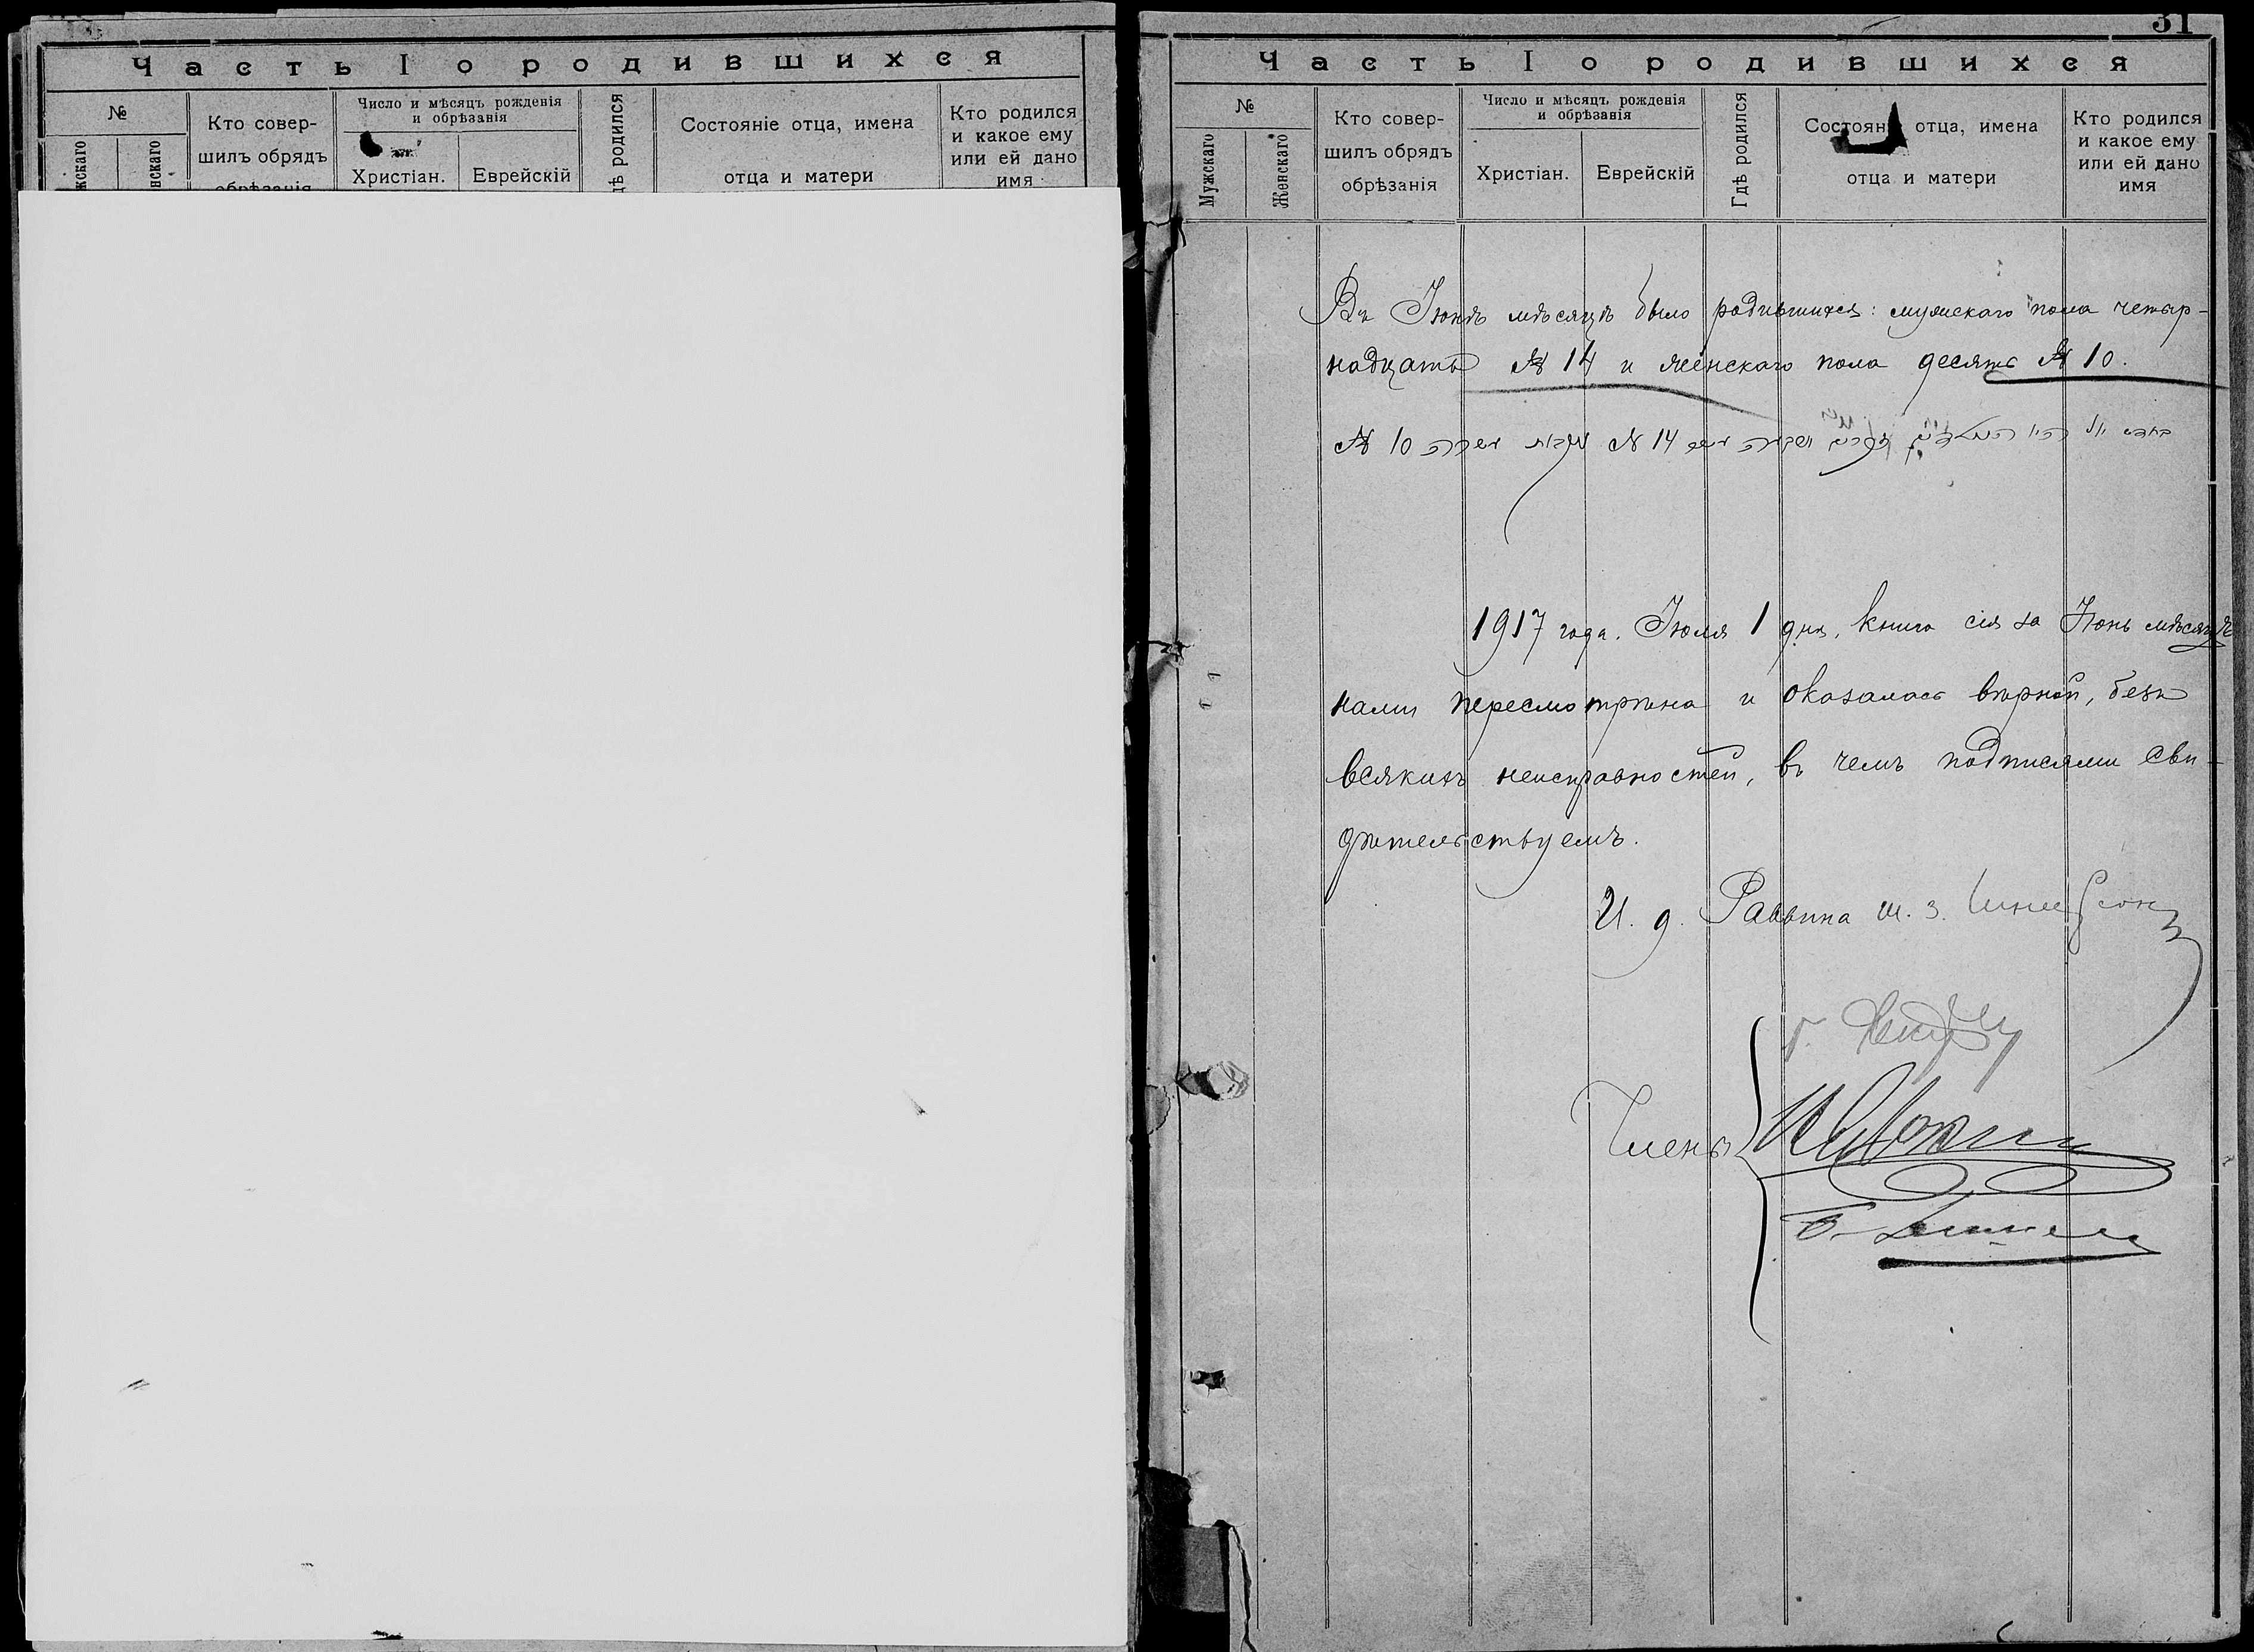 Часть I о родившихся
№
жскаго
нскаго
Кто совер-
шилъ обрядъ
обрѣзанія
Число и мѣсяцъ рожденія
и обрѣзанія
Христіан.
Еврейскій
дѣ родился
Состояніе отца, имена
отца и матери
Кто родился
и какое ему
или ей дано
имя
31
Часть I о родившихся
№
Мужскаго
Женскаго
Кто совер-
шилъ обрядъ
обрѣзанія
Число и мѣсяцъ рожденія
и обрѣзанія
Христіан.
Еврейскій
Гдѣ родился
Состоян отца, имена
отца и матери
Кто родился
и какое ему
или ей дано
имя
Въ Іюнѣ мѣсяцѣ было родившихся: мужскаго пола четыр-
надцать № 14 и женскаго пола десять № 10.
№ 14 № 10
1917 года. Іюля 1 дня, книга сія за Іюнь мѣсяцъ
нами пересмотрѣна и оказалась вѣрной, безъ
всякихъ неисправностей, въ чемъ подписями сви-
дѣтельствуемъ.
И. д. Раввина Ш. З.
Члены